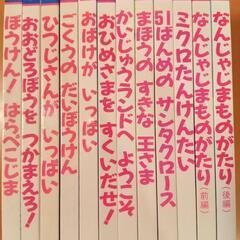 なんじゃじまものがたり(後編)
なんじゃじまものがたり(前編)
ミクロたんけんたい
51ばんめの サンタクロース
まほうの すきな 王さま
かいじゅうランドへ ようこそ
おひめさまを すくいだせ!
おばけが いっぱい
ごくうの だいぼうけん
ひつじさんが いっぱい
おおどろぼうを つかまえろ!
ぼうけん! はらぺこじま